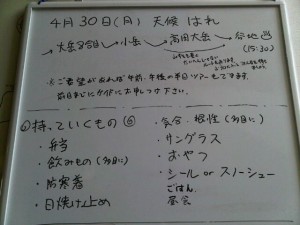 4月30日(月) 天候 はれ
大岳8合目→小岳→高田大岳→谷地
(15:30)
※ご希望があれば午前、午後の半日ツアーもできます。
前日までにガイドにお申しつけ下さい。
◎持っていくもの◎
・弁当
・飲みもの(多目に)
・防寒着
・日焼け止め
・気合・根性(多目に)
・サングラス
・おやつ
・シール or スノーシュー